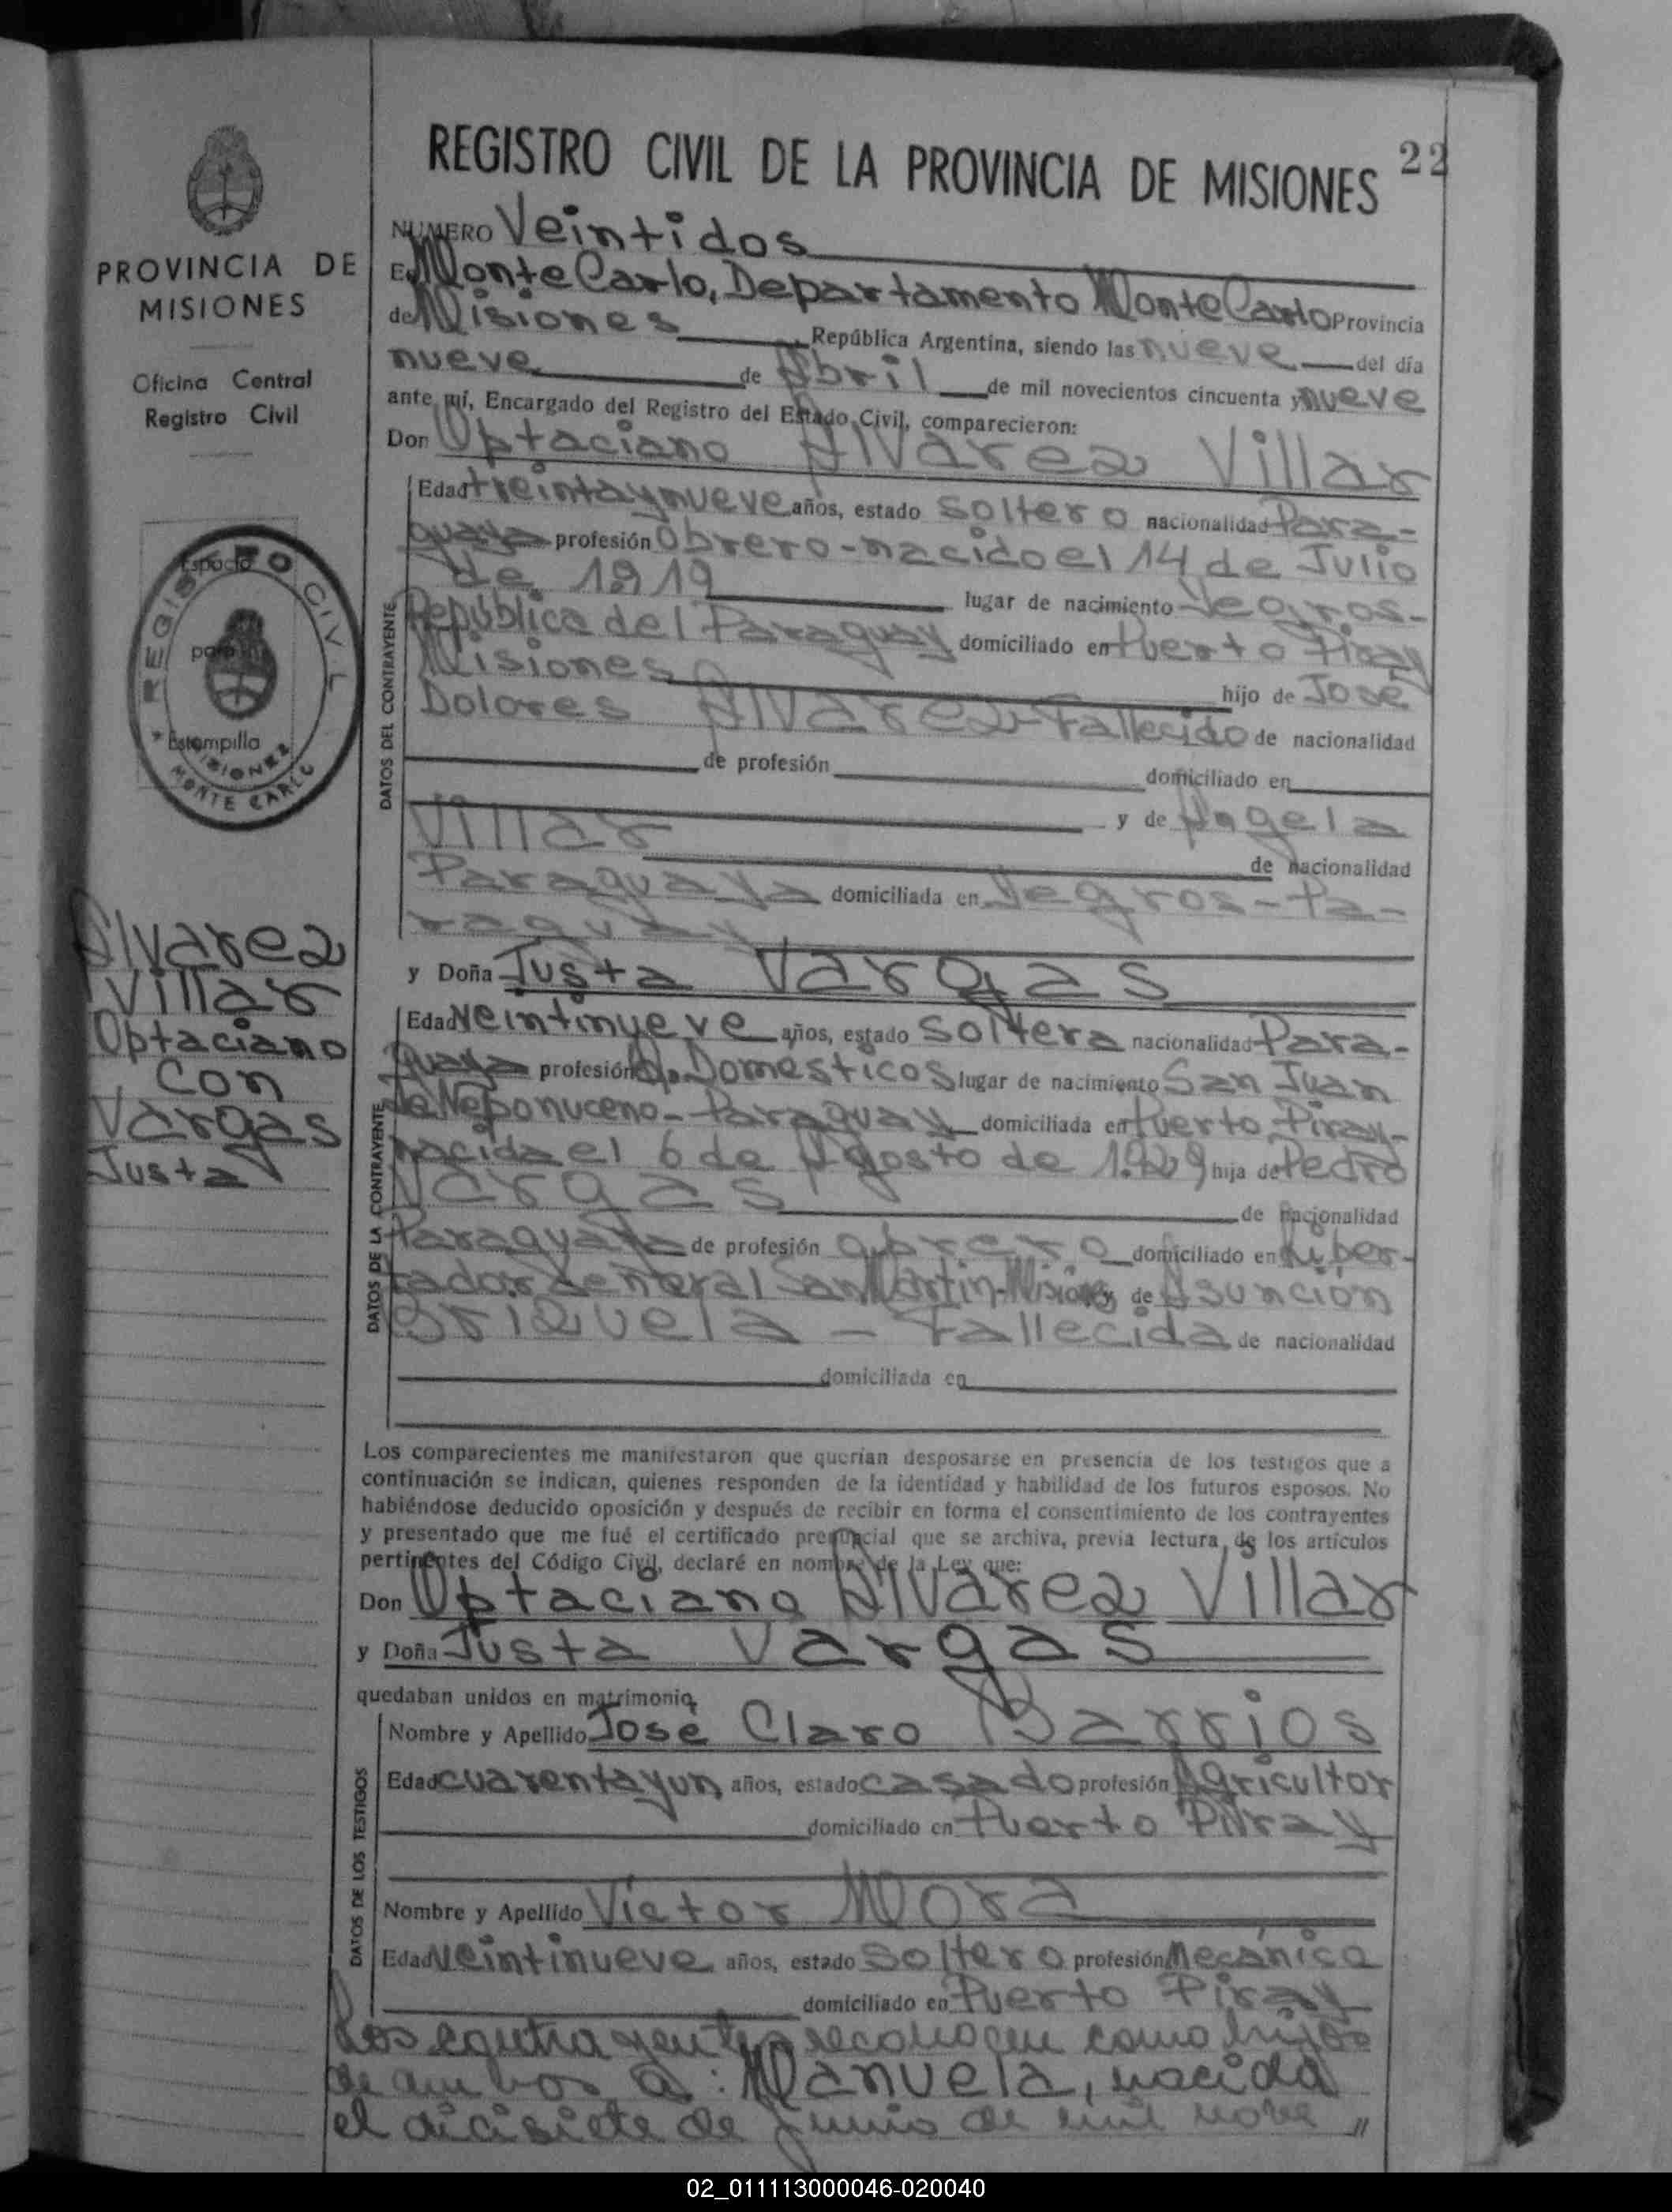 REGISTRO CIVIL DE LA PROVINCIA DE MISIONES 22
PROVINCIA DE
MISIONES
Oficina Central
Registro Civil
REGISTRO CIVIL
Espacio
para
Estampilla
MISIONES
MONTE CARLO
Alvarez
Villar
Optaciano
con
Vargas
Justa
NUMERO Veintidos
En Monte Carlo, Departamento Monte Carlo Provincia
de Misiones República Argentina, siendo las nueve del día
nueve de Abril de mil novecientos cincuenta y nueve
ante mí, Encargado del Registro del Estado Civil, comparecieron:
Don Optaciano Alvarez Villar
DATOS DEL CONTRAYENTE
Edad treintaynueve años, estado soltero nacionalidad Para-
guaya profesión Obrero-nacido el 14 de Julio
de 1919 lugar de nacimiento Yegros-
República del Paraguay domiciliado en Puerto Piray
Misiones hijo de José
Dolores Alvarez-Fallecido de nacionalidad
de profesión domiciliado en
y de Angela
Villar de nacionalidad
Paraguaya domiciliada en Yegros-Pa-
raguay
y Doña Justa Vargas
DATOS DE LA CONTRAYENTE
Edad veintinueve años, estado soltera nacionalidad Para-
guaya profesión Q. Domésticos lugar de nacimiento San Juan
de Neponuceno-Paraguay domiciliada en Puerto Piray-
nacida el 6 de Agosto de 1.929 hija de Pedro
Vargas de nacionalidad
Paraguaya de profesión obrero domiciliado en Liber-
tador General San Martin-Misiones y de Asunción
Brizuela - Fallecida de nacionalidad
domiciliada en
Los comparecientes me manifestaron que querían desposarse en presencia de los testigos que a
continuación se indican, quienes responden de la identidad y habilidad de los futuros esposos. No
habiéndose deducido oposición y después de recibir en forma el consentimiento de los contrayentes
y presentado que me fué el certificado prenupcial que se archiva, previa lectura de los artículos
pertinentes del Código Civil, declaré en nombre de la Ley que:
Don Optaciano Alvarez Villar
y Doña Justa Vargas
quedaban unidos en matrimonio
DATOS DE LOS TESTIGOS
Nombre y Apellido José Claro Barrios
Edad cuarentayun años, estado casado profesión Agricultor
domiciliado en Puerto Piray
Nombre y Apellido Víctor Mora
Edad veintinueve años, estado soltero profesión Mecánico
domiciliado en Puerto Piray
Los contrayentes reconocen como hijos
de ambos a: Manuela, nacida
el diecisiete de Junio de mil nove "
02_011113000046-020040